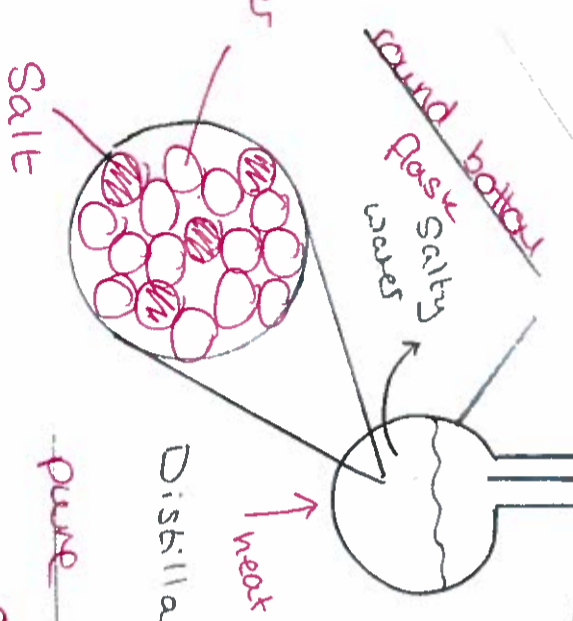 round bottom
flask
Salty
water
Salt
heat
Distilla
pure